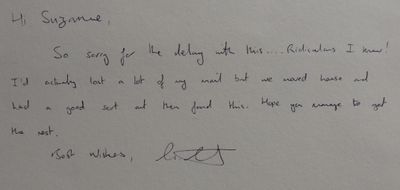 Hi Suzanne,
So sorry for the delay with this.... Ridiculous I know!
I'd actually lost a lot of my mail but we moved house and
had a good sort out then found this. Hope you manage to get
the rest.
Best Wishes,